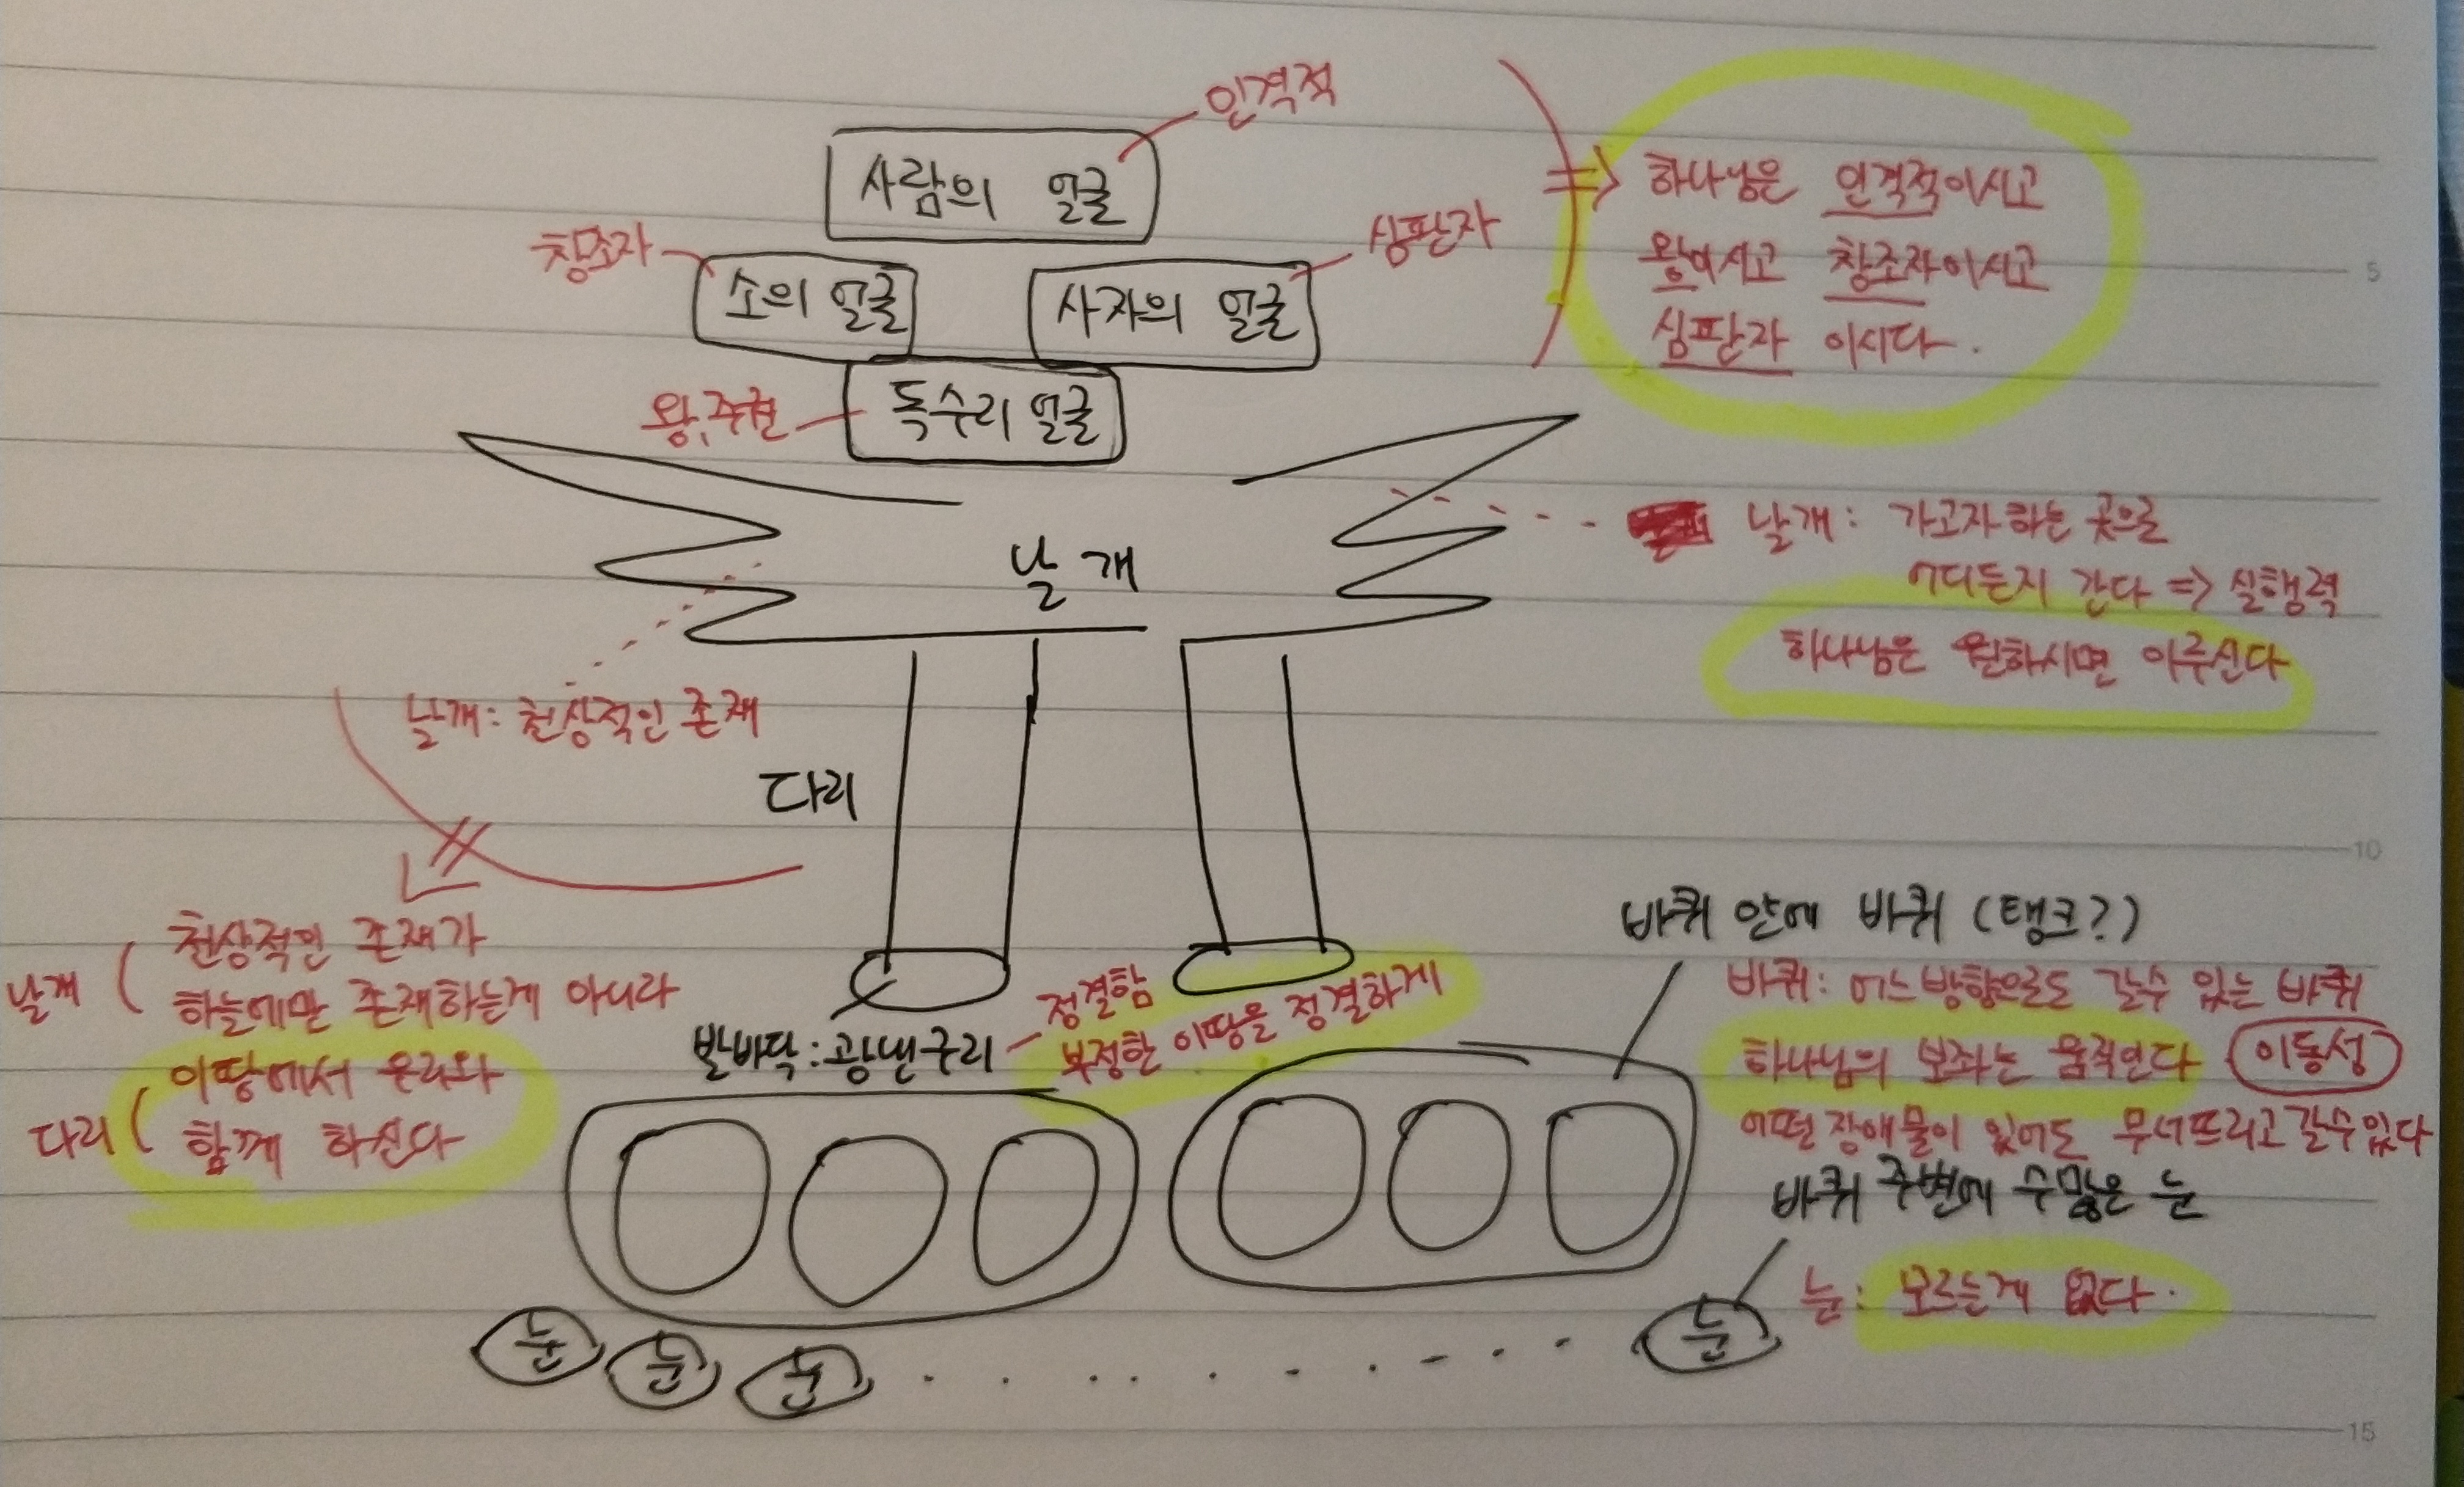 인격적
사람의 얼굴
창조자
소의 얼굴
심판자
사자의 얼굴
왕, 주권
독수리 얼굴
⇒ 하나님은 인격적이시고
왕이시고 창조자이시고
심판자 이시다.
날개
날개: 가고자 하는 곳으로
어디든지 간다 ⇒ 실행력
하나님은 원하시면 이루신다
날개: 천상적인 존재
다리
날개 ( 천상적인 존재가
하늘에만 존재하는게 아니라
다리 ( 이땅에서 우리와
함께 하신다
발바닥: 광낸구리
정결함
부정한 이땅을 정결하게
바퀴 안에 바퀴 (탱크?)
바퀴: 어느방향으로도 갈수 있는 바퀴
하나님의 보좌는 움직인다 이동성
어떤 장애물이 있어도 무너뜨리고 갈수있다
바퀴 주변에 수많은 눈
눈: 모르는게 없다.
눈 눈 눈 눈
5
10
15